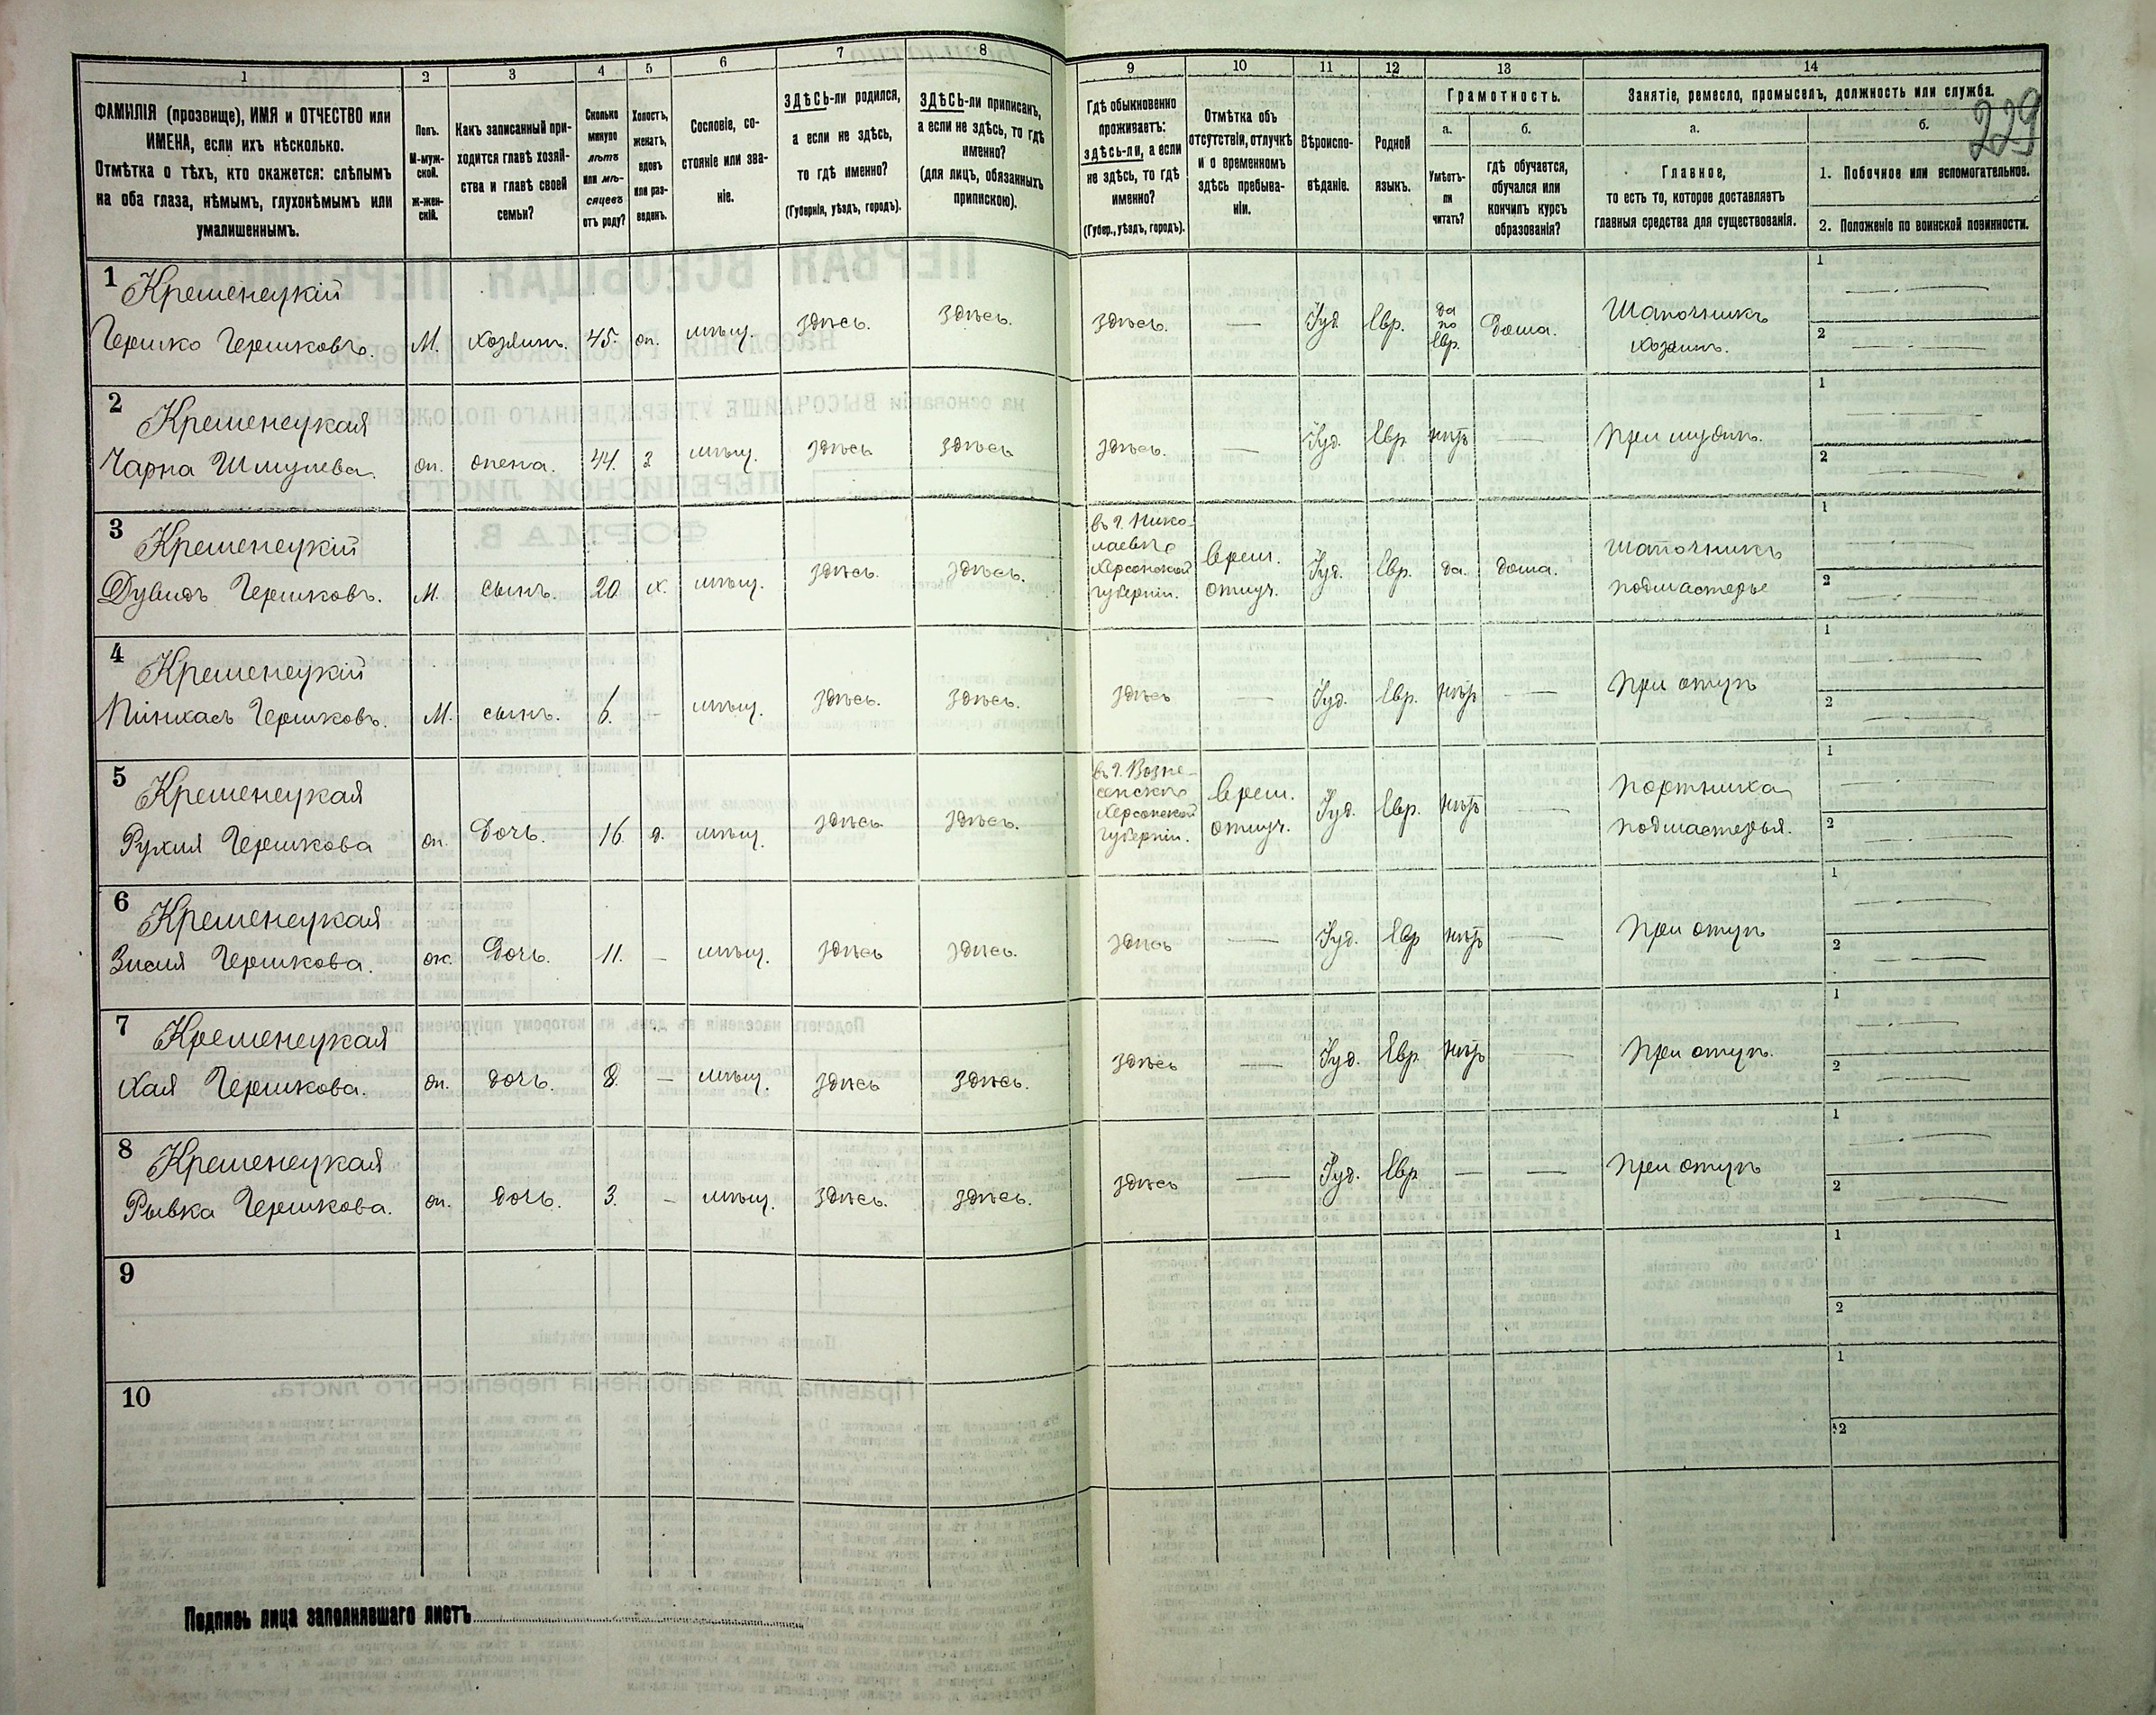 229
1
2
3
4
5
6
7
8
9
10
11
12
13
14
ФАМИЛІЯ (прозвище), ИМЯ и ОТЧЕСТВО или
ИМЕНА, если ихъ нѣсколько.
Отмѣтка о тѣхъ, кто окажется: слѣпымъ
на оба глаза, нѣмымъ, глухонѣмымъ или
умалишеннымъ.
Полъ.
М-муж-
ской.
ж-жен-
скій.
Какъ записанный при-
ходится главѣ хозяй-
ства и главѣ своей
семьи?
Сколько
минуло
лѣтъ
или мѣ-
сяцевъ
отъ роду?
Холостъ,
женатъ,
вдовъ
или раз-
веденъ.
Сословіе, со-
стояніе или зва-
ніе.
ЗДѢСЬ-ли родился,
а если не здѣсь,
то гдѣ именно?
(Губернія, уѣздъ, городъ).
ЗДѢСЬ-ли приписанъ,
а если не здѣсь, то гдѣ
именно?
(для лицъ, обязанныхъ
припискою).
Гдѣ обыкновенно
проживаетъ:
здѣсь-ли, а если
не здѣсь, то гдѣ
именно?
(Губер., уѣздъ, городъ).
Отмѣтка объ
отсутствіи, отлучкѣ
и о временномъ
здѣсь пребыва-
ніи.
Вѣроиспо-
вѣданіе.
Родной
языкъ.
Грамотность.
а.
Умѣетъ-
ли
читать?
б.
гдѣ обучается,
обучался или
кончилъ курсъ
образованія?
Занятіе, ремесло, промыселъ, должность или служба.
а.
Главное,
то есть то, которое доставляетъ
главныя средства для существованія.
б.
1. Побочное или вспомогательное.
2. Положеніе по воинской повинности.
1 Кременецкій
Гершко Гершковъ. М. хозяинъ. 45. жн. мѣщ. здѣсь. здѣсь. здѣсь. — Іуд. Евр. да по Евр. дома. Шапочникъ хозяинъ. 1 — 2 —
2 Кременецкая
Чарна Шмулева. жн. жена. 44. з мѣщ. здѣсь здѣсь здѣсь. — Іуд. Евр. нѣтъ — при мужѣ. 1 — 2 —
3 Кременецкій
Дувидъ Гершковъ. М. сынъ. 20. х. мѣщ. здѣсь. здѣсь. въ г. Нико-
лаевѣ
Херсонской
губерніи. врем. отлуч. Іуд. Евр. да. дома. шапочникъ подмастерье 1 — 2 —
4 Кременецкій
Пинкасъ Гершковъ. М. сынъ. 6. — мѣщ. здѣсь. здѣсь. здѣсь — Іуд. Евр. нѣтъ — при отцѣ 1 — 2 —
5 Кременецкая
Рухля Гершкова жн. дочь. 16. д. мѣщ. здѣсь здѣсь. въ г. Возне-
сенскѣ
Херсонской
губерніи. врем. отлуч. Іуд. Евр. нѣтъ — портниха подмастерья. 1 — 2 —
6 Кременецкая
Зисля Гершкова. жн. дочь. 11. — мѣщ. здѣсь здѣсь. здѣсь — Іуд. Евр нѣтъ — при отцѣ 1 — 2 —
7 Кременецкая
Хая Гершкова. жн. дочь. 8. — мѣщ. здѣсь здѣсь. здѣсь — Іуд. Евр. нѣтъ — при отцѣ. 1 — 2 —
8 Кременецкая
Рывка Гершкова. жн. дочь. 3. — мѣщ. здѣсь. здѣсь. здѣсь — Іуд. Евр — — при отцѣ 1 — 2 —
9 1 2
10 1 2
Подпись лица заполнявшаго листъ